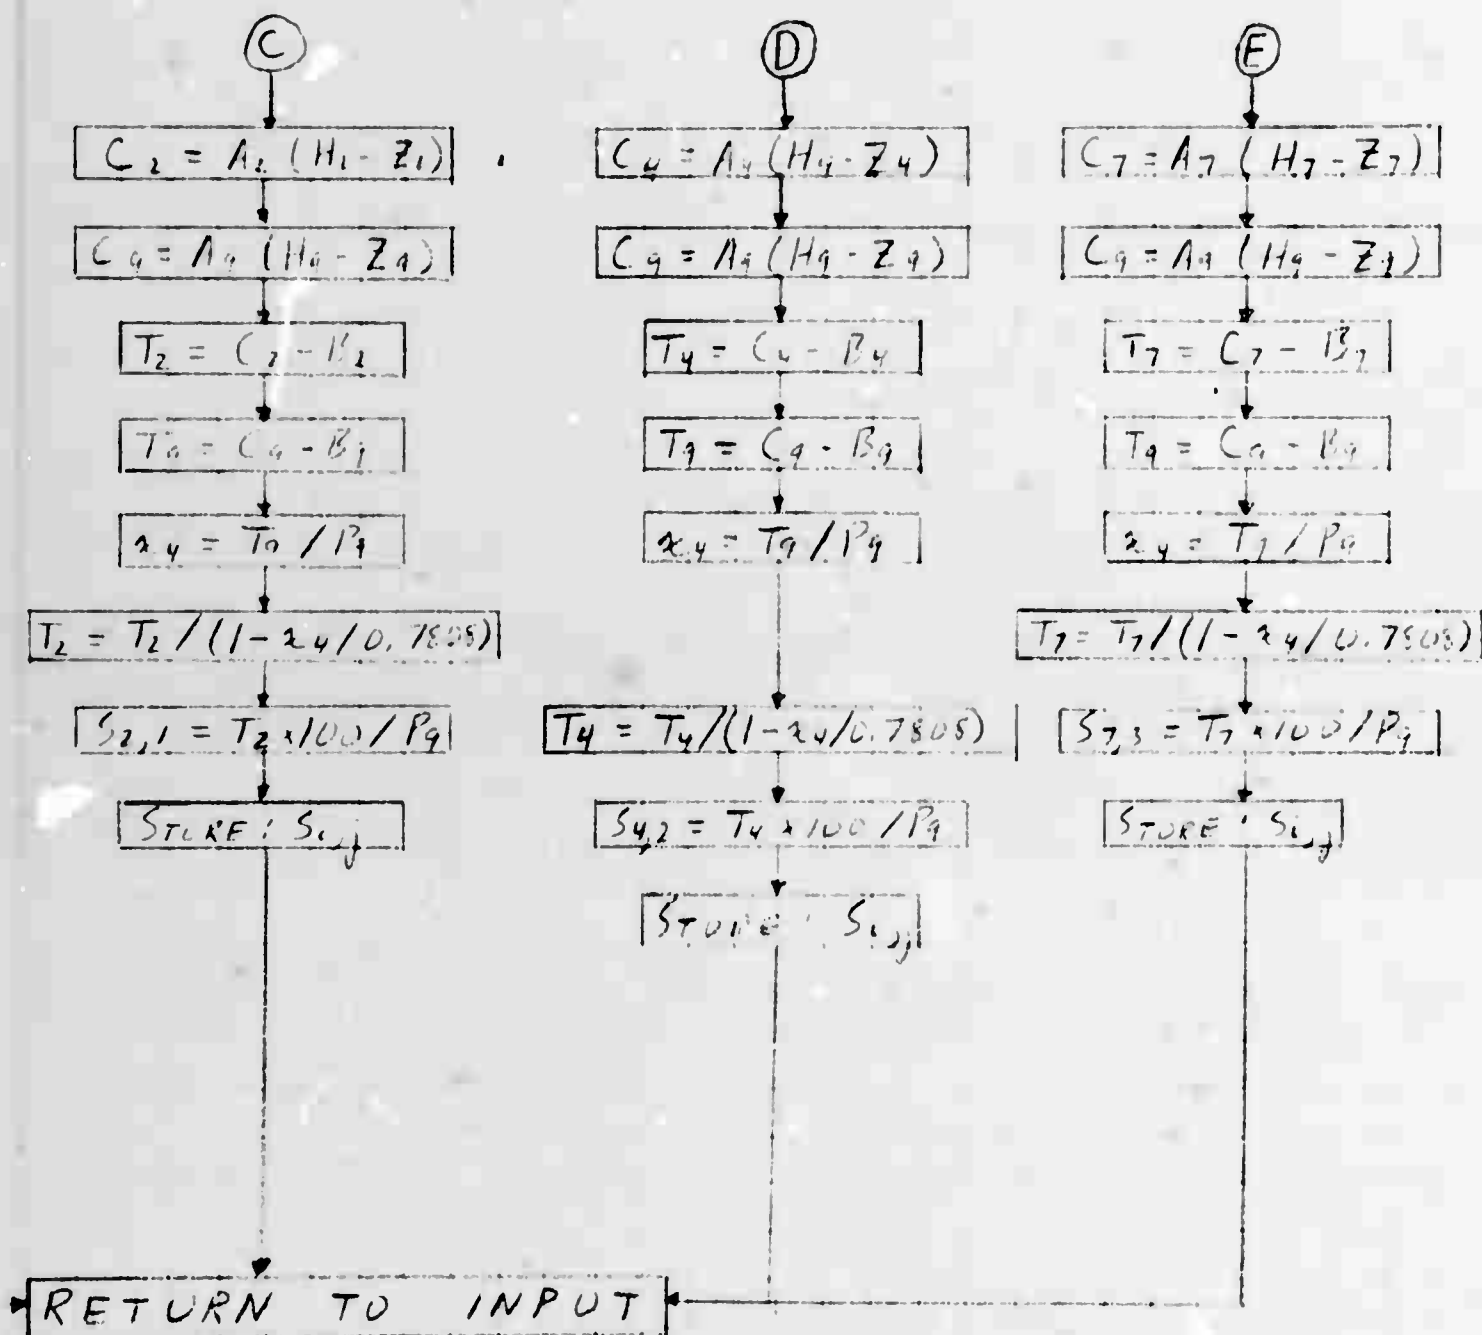 C
C₂ = A₂ (H₁ - Z₁)
C₉ = A₉ (H₉ - Z₉)
T₂ = C₂ - B₂
T₉ = C₉ - B₉
x₄ = T₉ / P₉
T₂ = T₂ / (1 - x₄ / 0.7808)
S₂,₁ = T₂ × 100 / P₉
STORE: Sᵢ,ⱼ
D
C₄ = A₄ (H₄ - Z₄)
C₉ = A₉ (H₉ - Z₉)
T₄ = C₄ - B₄
T₉ = C₉ - B₉
x₄ = T₉ / P₉
T₄ = T₄ / (1 - x₄ / 0.7808)
S₄,₂ = T₄ × 100 / P₉
STORE: Sᵢ,ⱼ
E
C₇ = A₇ (H₇ - Z₇)
C₉ = A₉ (H₉ - Z₉)
T₇ = C₇ - B₇
T₉ = C₉ - B₉
x₄ = T₉ / P₉
T₇ = T₇ / (1 - x₄ / 0.7808)
S₇,₃ = T₇ × 100 / P₉
STORE: Sᵢ,ⱼ
RETURN TO INPUT